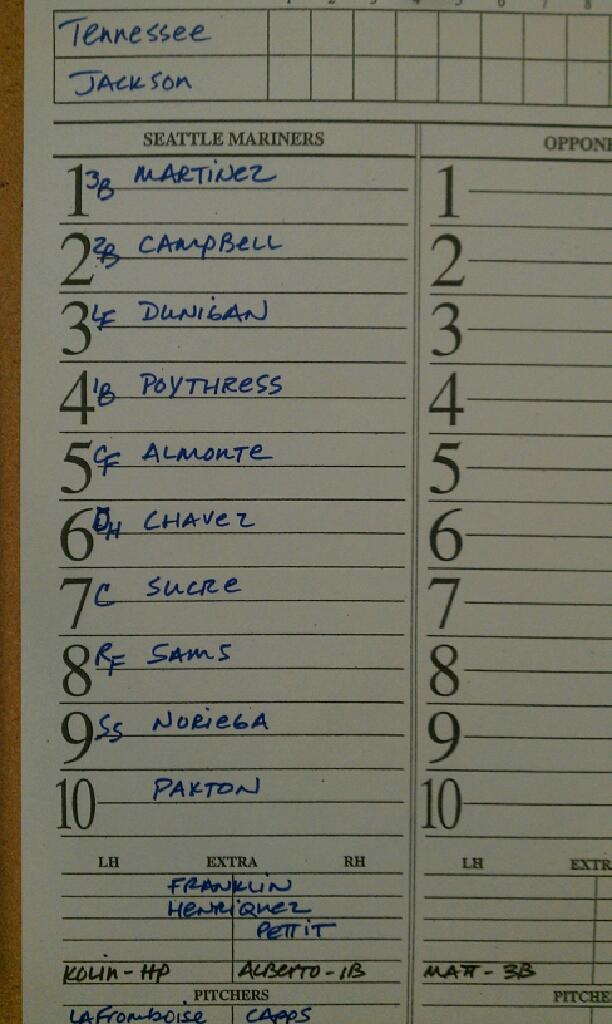 Tennessee
JACKSON
SEATTLE MARINERS
1 3B MARTINEZ
2 2B CAMPBELL
3 LF DUNIGAN
4 1B POYTHRESS
5 CF ALMONTE
6 DH CHAVEZ
7 C SUCRE
8 RF SAMS
9 SS NORIEGA
10 PAXTON
LH EXTRA RH
FRANKLIN
HENRIQUEZ
PETTIT
KOLIN - HP ALBERTO - 1B
PITCHERS
LAFromboise CAPPS
1
2
3
4
5
6
7
8
9
10
LH
MATT - 3B